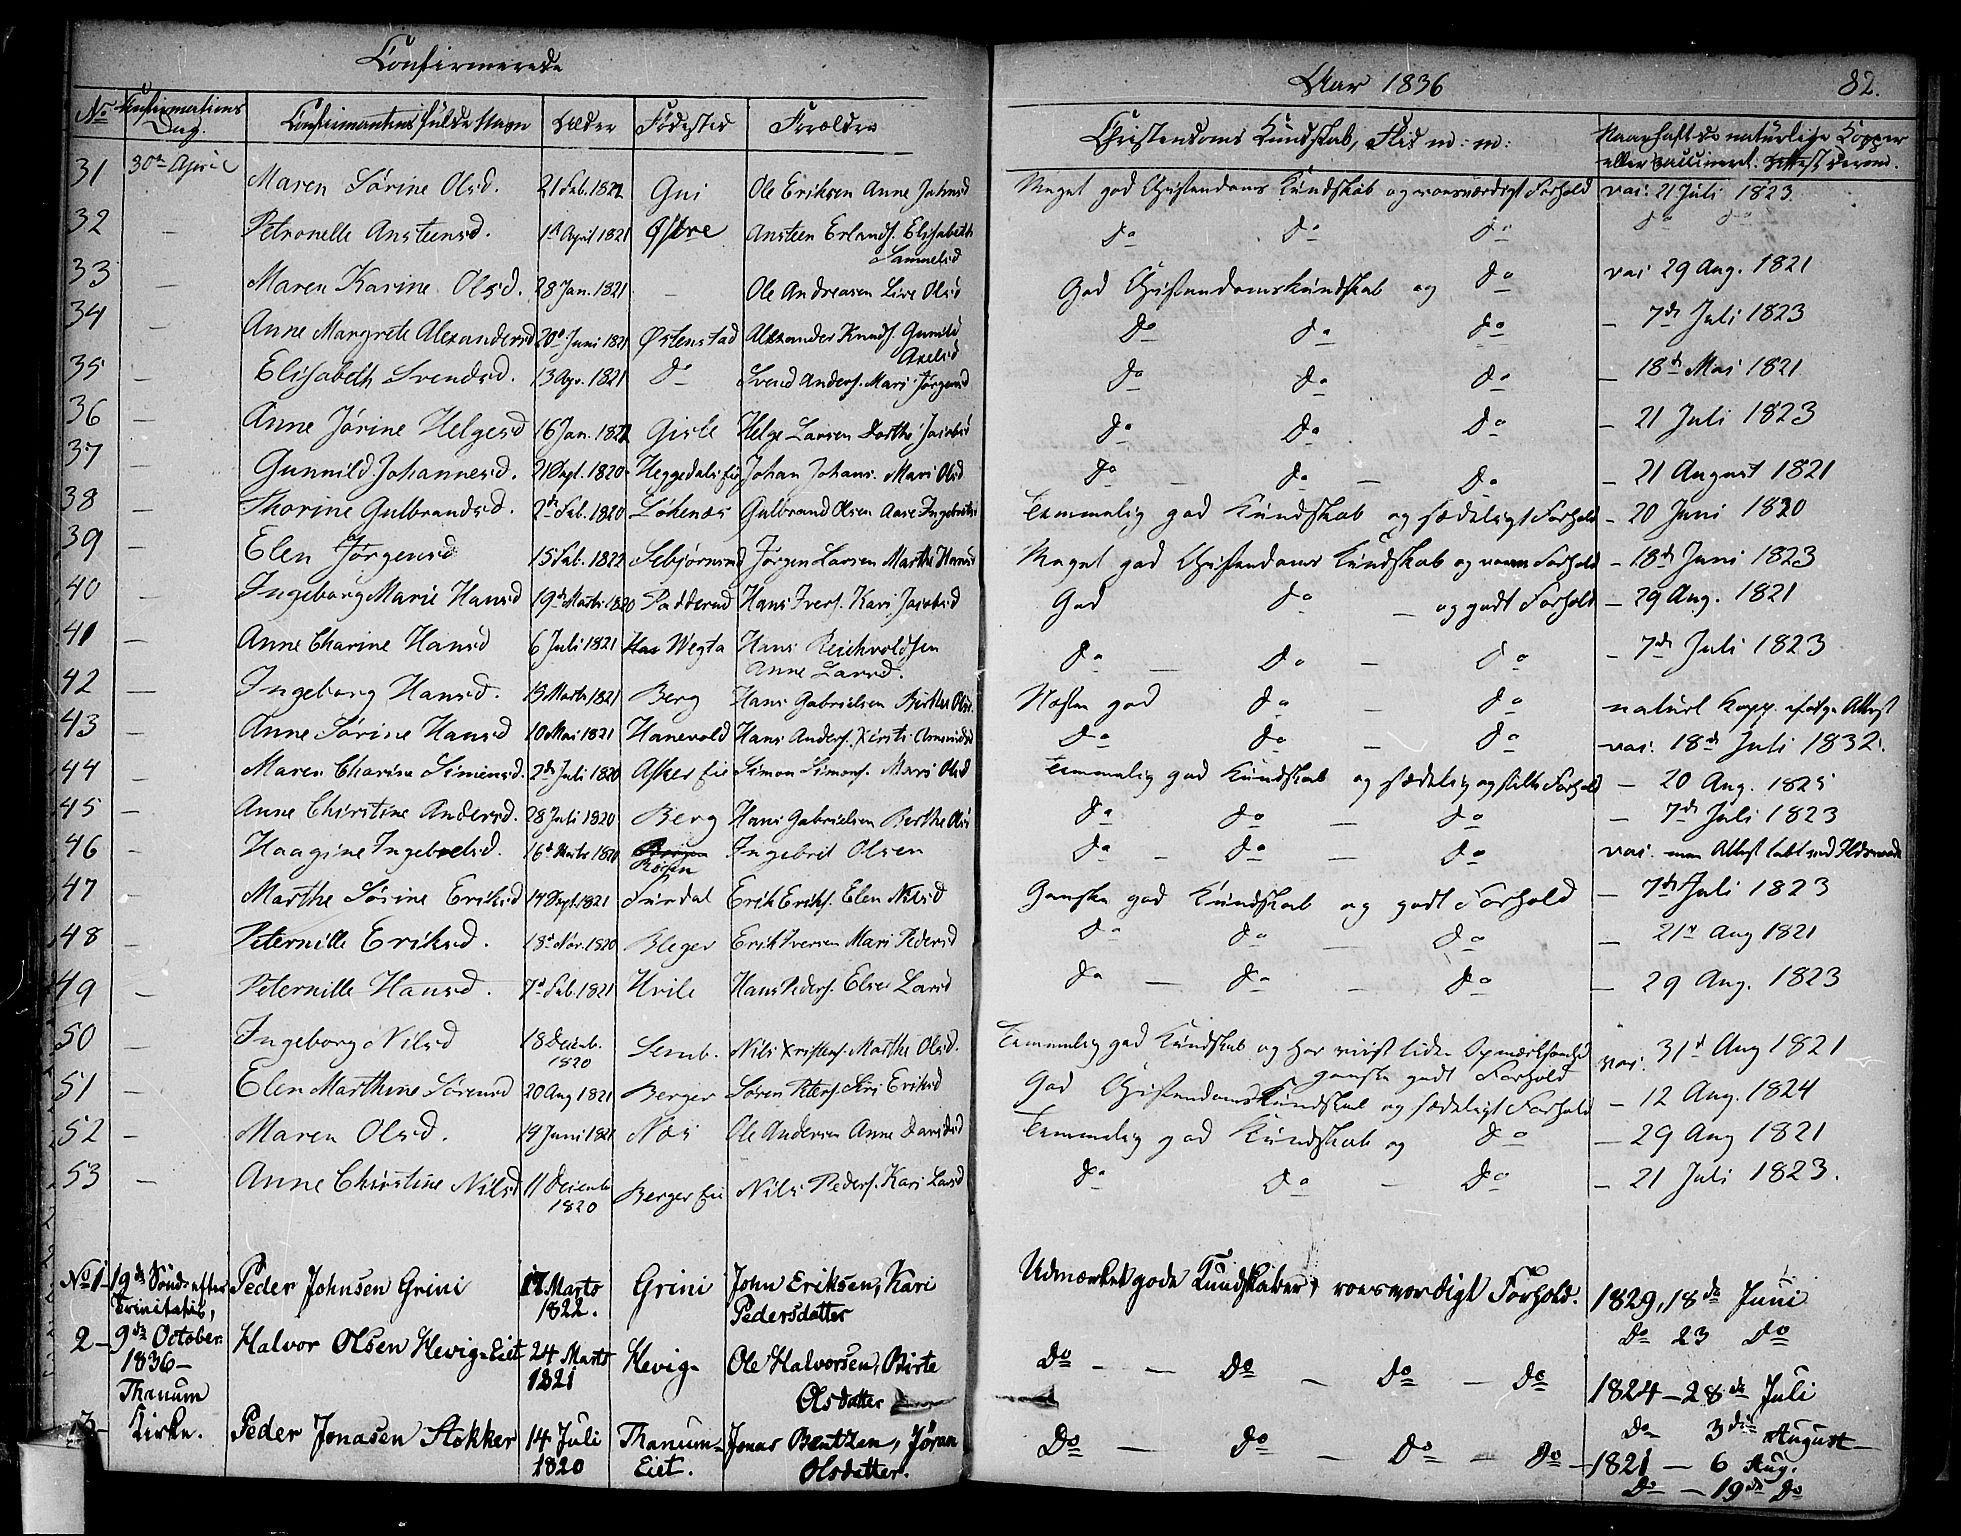 Confirmerede
Aar 1836
82.
No Confirmations Dag. Confirmantens fulde Navn Alder Fødested Forældre Christendoms Kundskab, Flid m: m: Naar haft de naturlige Kopper
eller vaccineret. Attest derom.
31 30te April Maren Sørine Olsd. 21 Feb. 1822 Gui Ole Eriksen Anne Johnsd Meget god Christendoms Kundskab og roesværdigt Forhold vac. 21 Juli 1823.
32 — Petronelle Ansteensd. 1st April 1821 Østre Ansteen Erlands. Elisabeth do do do do do
Samuelsd
33 — Maren Karine Olsd. 28 Jan. 1821 — Ole Andreasen Live Olsd God Christendomskundskab og do vac 29 Aug. 1821
34 — Anne Margrete Alexandersd 20de Juni 1821 Østenstad Alexander Knuds. Gunild do do do — 7de Juli 1823
Axelsd
35 — Elisabeth Svendsd. 13 Apr. 1821 do Svend Anders. Mari Jørgensd do do do — 18de Mai 1821
36 — Anne Jørine Helgesd 16 Jan. 1822 Gisle Helge Larsen Dorthe Jacobsd do do do — 21 Juli 1823
37 — Gunnild Johannesd. 21 Sept. 1820 Heggedals Eie Johan Johans. Mari Olsd do — do — do — 21 August 1821
38 — Thorine Gulbrandsd. 2de Feb. 1820 Løkenæs Gulbrand Olsen Aase Ingebrets. Temmelig god Kundskab og sædeligt Forhold — 20 Juni 1820
39 — Elen Jørgensd 15 Feb. 1822 Sebjørnsrud Jørgen Larsen Marthe Hansd Meget god Christendoms Kundskab og Forhold — 18de Juni 1823
40 — Ingeborg Marie Hansd 19de Marts 1820 Padderud Hans Ivers. Kari Jacobsd God do — og godt Forhold — 29 Aug. 1821
41 — Anne Charine Hansd 6 Juli 1821 Wegta Hans Reichvoldsen do — do — do — 7de Juli 1823
Anne Larsd.
42 — Ingeborg Hansd. 13 Marts 1821 Berg Hans Gabrielsen Birthe Olsd. Næsten god do — do naturl Kopp. ifølge Attest
43 — Anne Sørine Hansd 10 Mai 1821 Hanevold Hans Anders. Kirsti Amundsd do do — do vac. 18de Juli 1832.
44 — Maren Charine Simensd. 2de Juli 1820 Asker Eie Simon Simons. Mari Olsd Temmelig god Kundskab og sædelig og stille Forhold — 20 Aug. 1825
45 — Anne Christine Andersd. 28 Juli 1820 Berg Hans Gabrielsen Berthe Olsd do do — do — 7de Juli 1823
46 — Haagine Ingebretsd. 16de Marts 1820 Røken Ingebrit Olsen do — do — do vac. men Attest tabt ved Ildsvaade
47 — Marthe Sørine Eriksd 14 Sept. 1821 Surdal Erik Eriks. Elen Nilsd Ganske god Kundskab og godt Forhold — 7de Juli 1823
48 — Peternille Eriksd. 18de Nov. 1820 Bleger Erik Iversen Mari Pedersd do do — do — 21de Aug 1821
49 — Peternille Hansd. 7de Feb. 1821 Hvile Hans Peders. Else Larsd do — do — do — 29 Aug. 1823
50 — Ingeborg Nilsd 18 Decemb. 1820 Semb. Nils Kristens. Marthe Olsd. Temmelig god Kundskab og har viist liden Opmærksomhed vac. 31te Aug 1821
ganske godt Forhold
51 — Elen Marthine Sørensd 20 Aug 1821 Berger Søren Peters. Siri Eriksd God Christendomskundskab og sædeligt Forhold — 12 Aug. 1824
52 — Maren Olsd. 19 Juni 1821 Næs Ole Andersen Anne Davidsd Temmelig god Kundskab og do — 29 Aug 1821
53 — Anne Christine Nilsd 11 Decemb 1820 Berger Eie Nils Peders. Kari Larsd do do — do — 21 Juli 1823.
No 1 — 19de Sönd. efter Peder Johnsen Grini 17 Marts Grini John Eriksen, Kari Udmærket gode Kundskaber, roesværdigt Forhold. 1829, 18de Juni
Trinitatis, 1822. Pedersdatter Do 23 Do
2 — 9de October Halvor Olsen Hevig-Eiet 24 Marts Hevig- Ole Halvorsen, Birte Do — — Do — Do — Do 1824 — 28de Juli
1836 — 1821 Olsdatter Do 3die August
Thanum
3 — Kirke. Peder Jonasen Stokker 14 Juli Thanum- Jonas Bentzen, Jøran Do — Do — Do — Do — 1821 — 6 Aug.
1820 Eiet. Olsdatter. Do — 19de Do